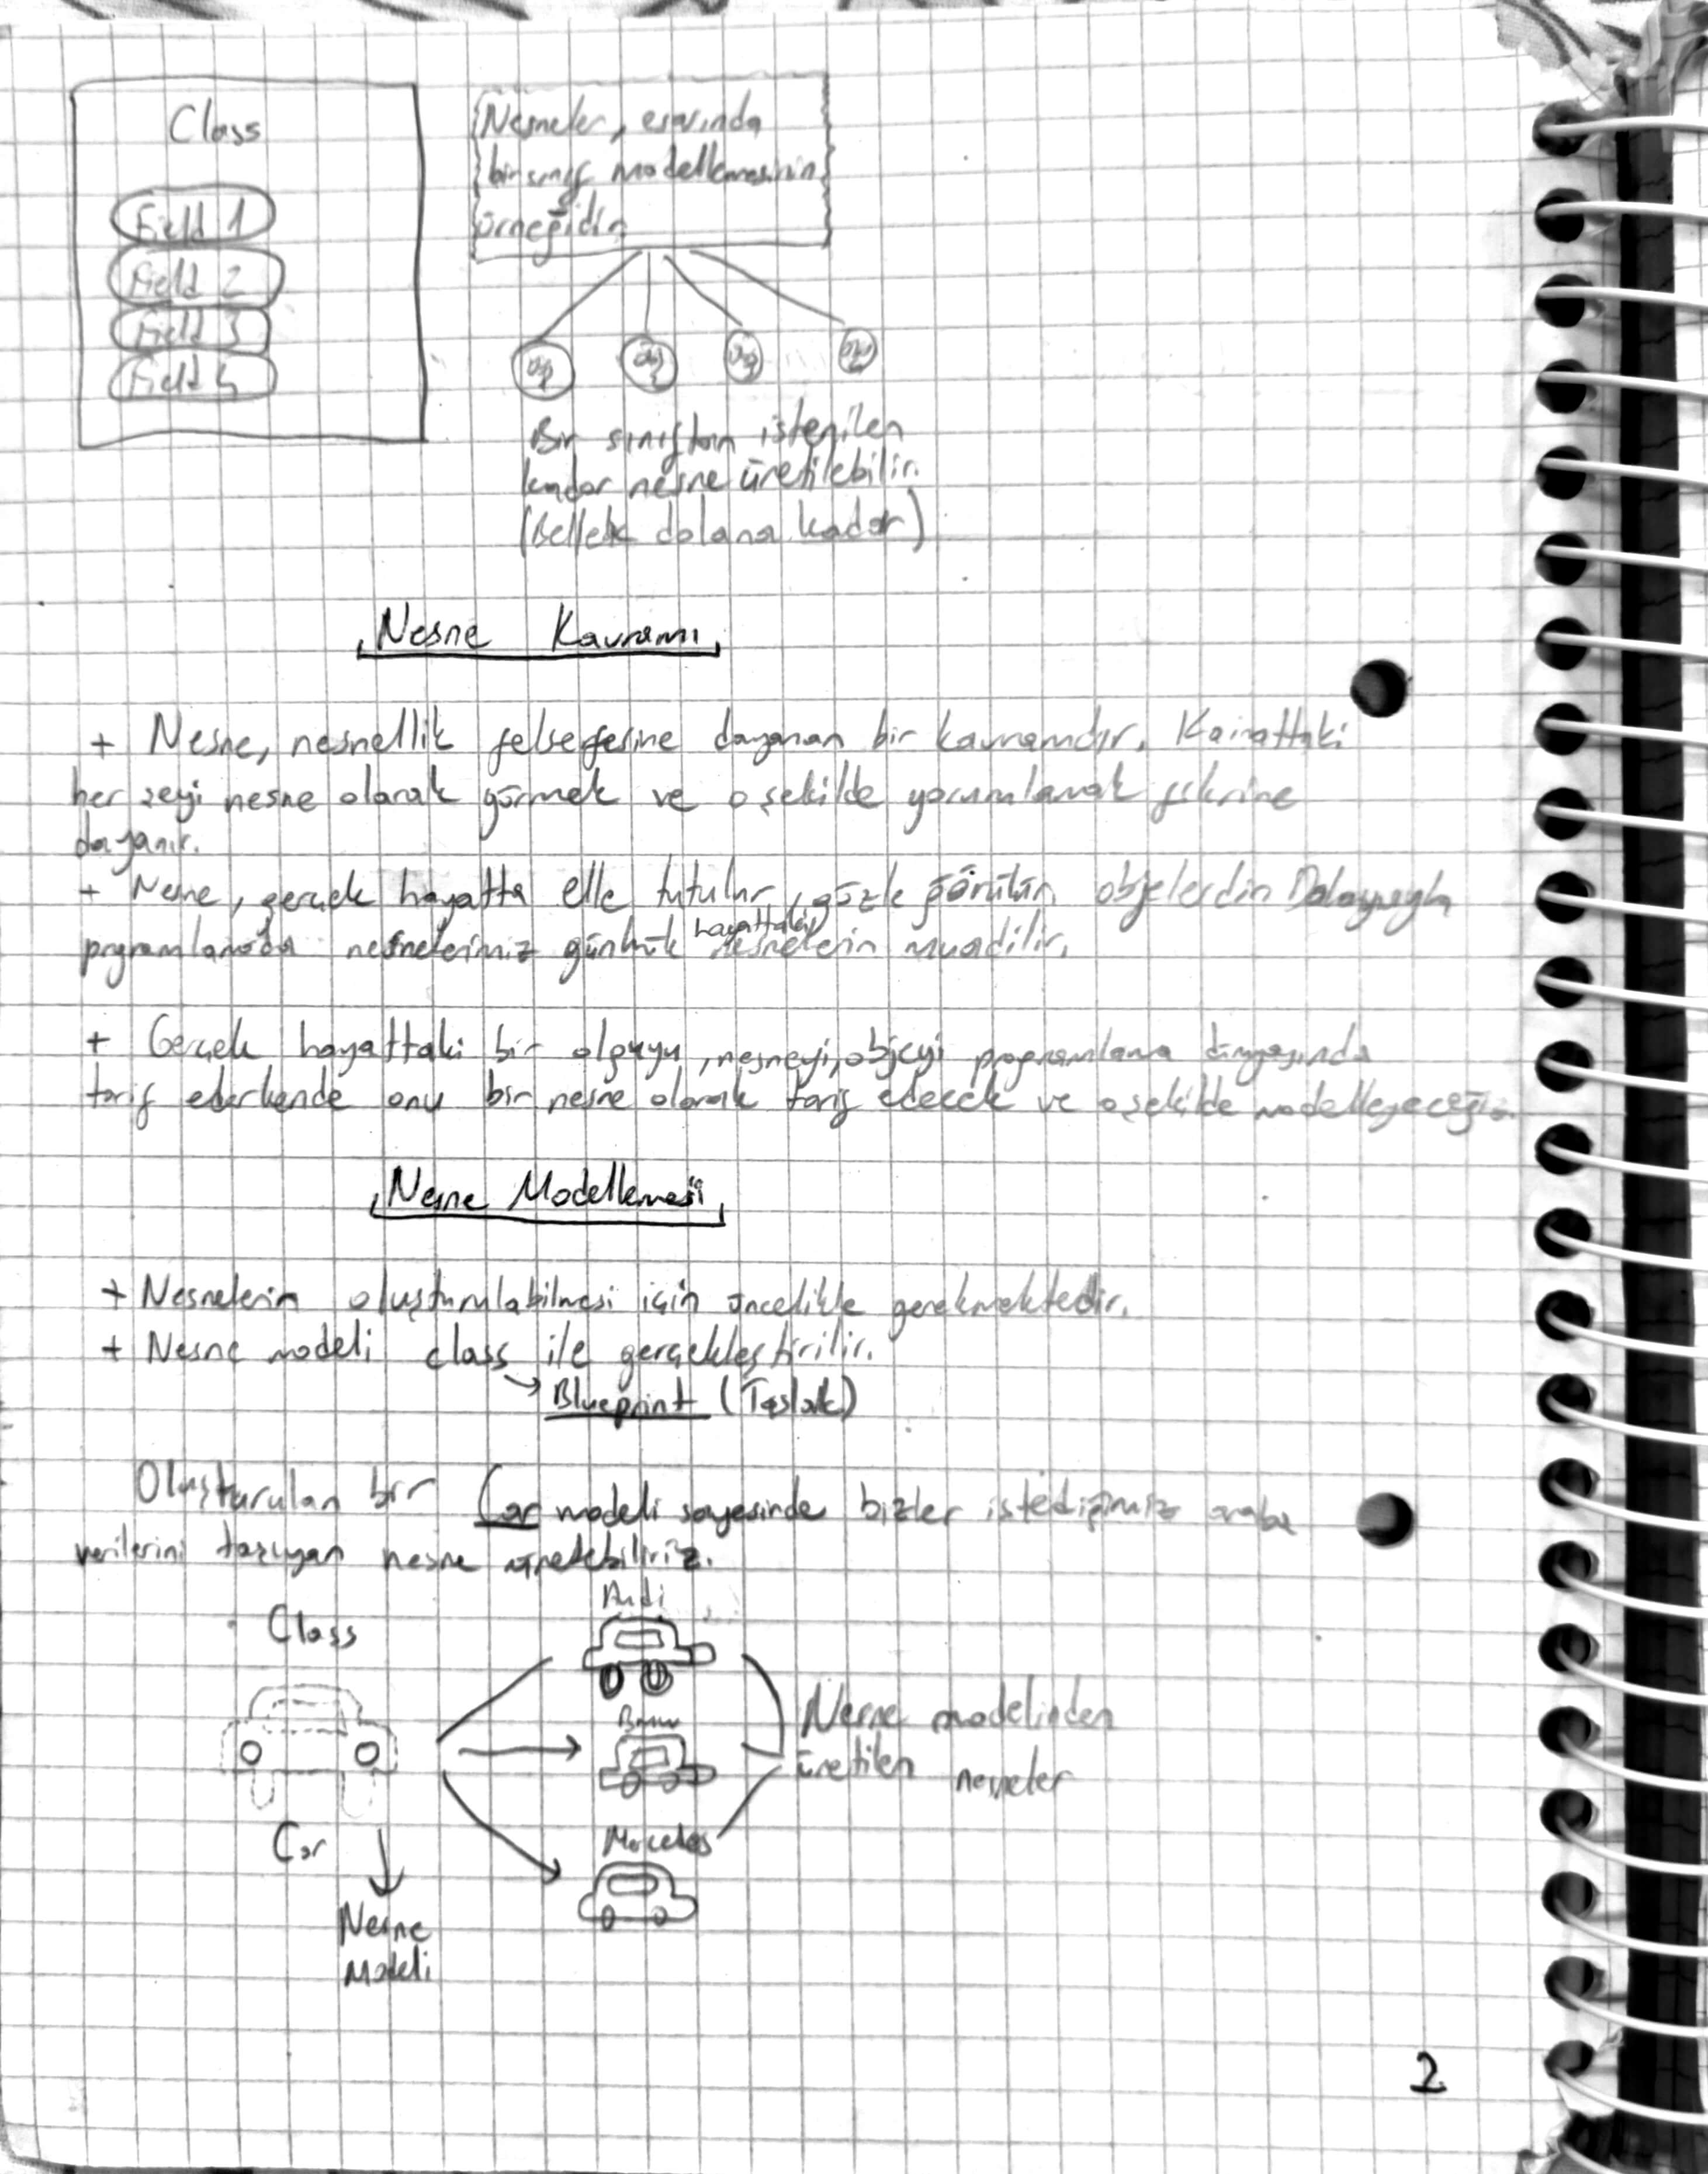 Class
Field 1
Field 2
Field 3
Field 4
Nesneler, esasında
bir sınıf modellemesinin
örneğidir
Bir sınıftan istenilen
kadar nesne üretilebilir.
(Bellek dolana kadar)
Nesne Kavramı
+ Nesne, nesnellik felsefesine dayanan bir kavramdır. Kainattaki
her şeyi nesne olarak görmek ve o şekilde yorumlamak fikrine
dayanır.
+ Nesne, gerçek hayatta elle tutulur, gözle görülür objelerdir. Dolayısıyla
programlamada nesnelerimiz günlük hayattaki nesnelerin muadilir.
+ Gerçek hayattaki bir olguyu, nesneyi, objeyi programlama dünyasında
tarif ederkende onu bir nesne olarak tarif edecek ve o şekilde modelleyeceğiz.
Nesne Modellemesi
+ Nesnelerin oluşturulabilmesi için öncelikle gerekmektedir.
+ Nesne modeli class ile gerçekleştirilir.
→ Blueprint (Taslak)
Oluşturulan bir Car modeli sayesinde bizler istediğimiz araba
verilerini taşıyan nesne üretebiliriz.
Class
Car
Nesne
Modeli
Audi
Bmw
Mercedes
Nesne modelinden
üretilen nesneler
2